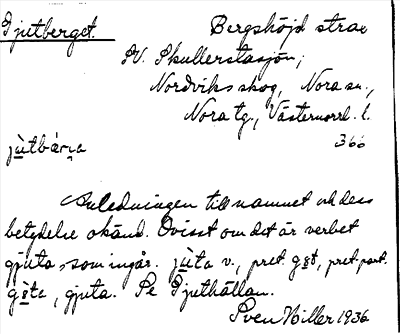 Djutberget.
Bergshöjd strax
SV. Skullerstasjön,
Nordviks skog, Nora sn.,
Nora tg., Västernorrl. l.
366
jùtbárⁿa
Anledningen till namnet och dess
betydelse okänd. Ovisst om det är verbet
gjuta, som ingår. jùta v., pret. gøt, pret. part.
gøte, gjuta. Se Djuthällan.
Sven Hiller 1936